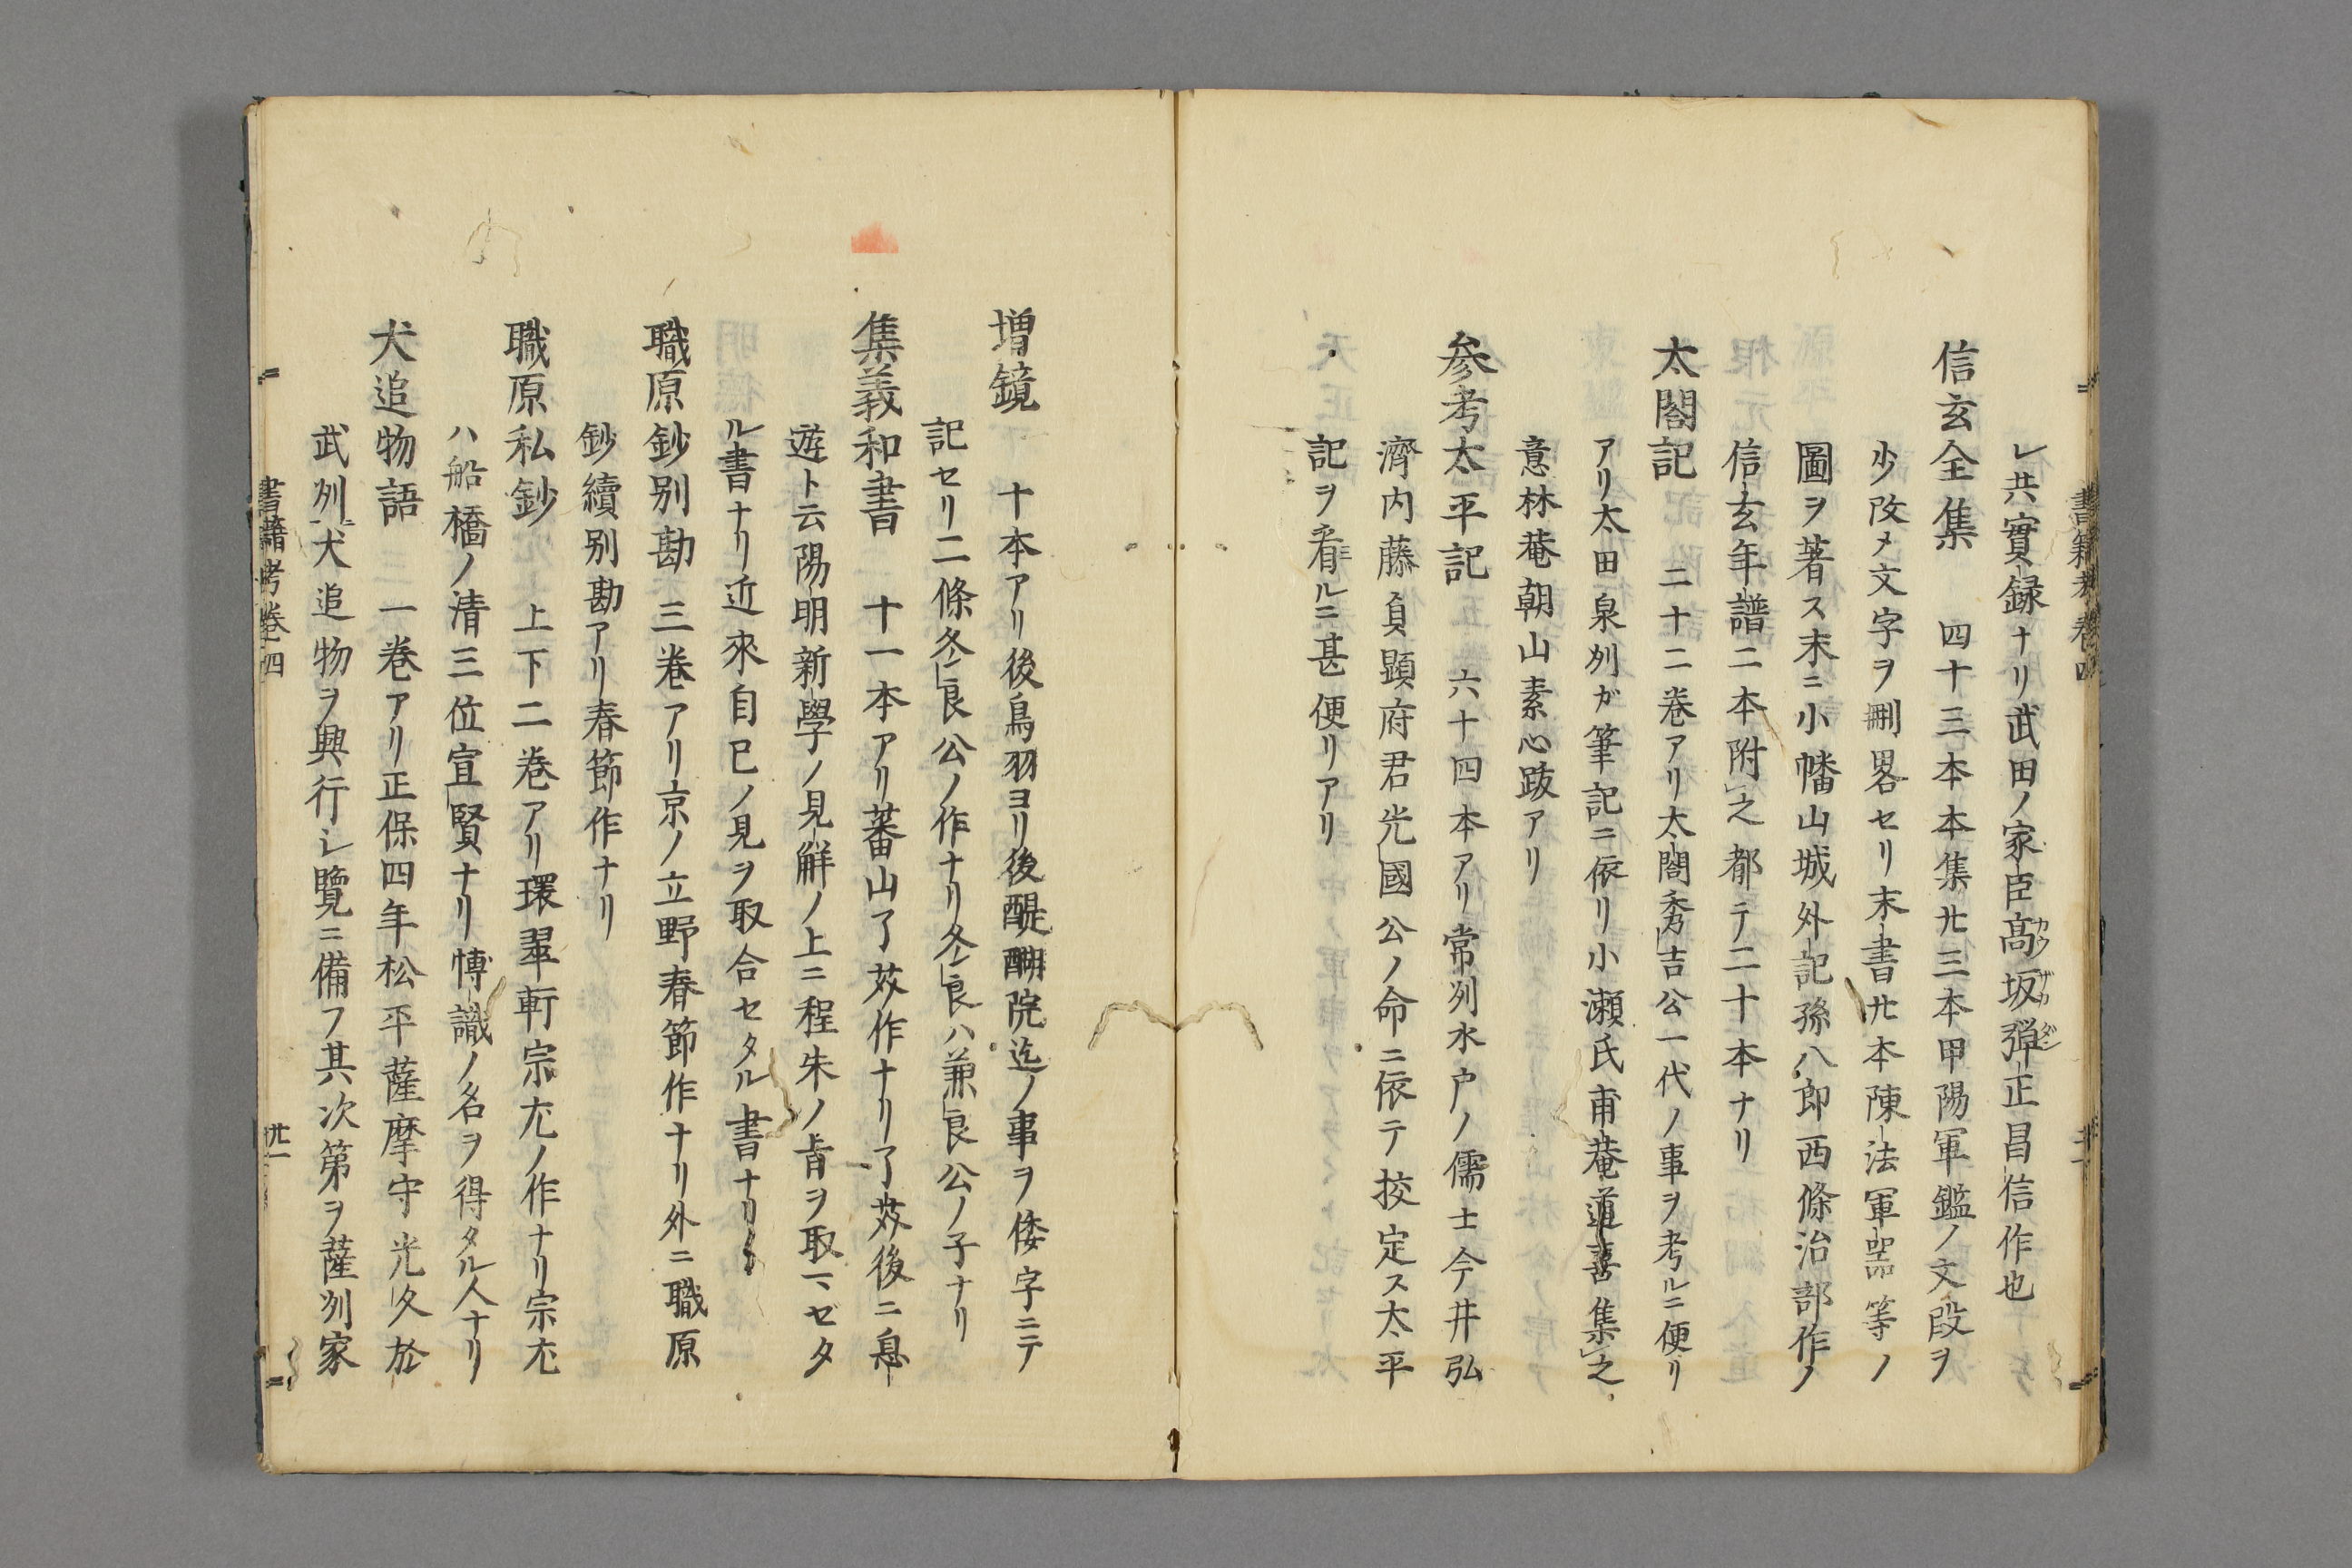 レ共實録ナリ武田ノ家臣髙坂彈正昌信作也
カウザカダン
信玄全集 四十三本本集廿三本甲陽軍鑑ノ文段ヲ
少改メ文字ヲ刪畧セリ末書廿本陳法軍器等ノ
圖ヲ著ス末ニ小幡山城外記孫八郎西條治部作ノ
信玄年譜二本附之都テ二十本ナリ
太閤記 二十二巻アリ太閤秀吉公一代ノ事ヲ考ルニ便リ
アリ太田泉刕ガ筆記ニ依リ小瀬氏甫菴道喜集之
意林菴朝山素心跋アリ
参考太平記 六十四本アリ常刕水戸ノ儒士今井弘
濟内藤貞顕府君光國公ノ命ニ依テ挍定ス太平
記ヲ看ルニ甚便リアリ
増鏡 十本アリ後鳥羽ヨリ後醍醐院迄ノ事ヲ倭字ニテ
記セリ二條冬良公ノ作ナリ冬良ハ兼良公ノ子ナリ
集義和書 十一本アリ蕃山了芥作ナリ了芥後ニ息
遊ト云陽明新學ノ見解ノ上ニ程朱ノ旨ヲ取マゼタ
ル書ナリ近來自己ノ見ヲ取合セタル書ナリ
職原鈔別勘 三巻アリ京ノ立野春節作ナリ外ニ職原
鈔續别勘アリ春節作ナリ
職原私鈔 上下二巻アリ環翠軒宗尤ノ作ナリ宗尤
ハ船橋ノ清三位宣賢ナリ博識ノ名ヲ得タル人ナリ
犬追物語 一巻アリ正保四年松平薩摩守光久於
武刕犬追物ヲ興行シ覽ニ備フ其次第ヲ薩刕家
書籍考巻四
廿一